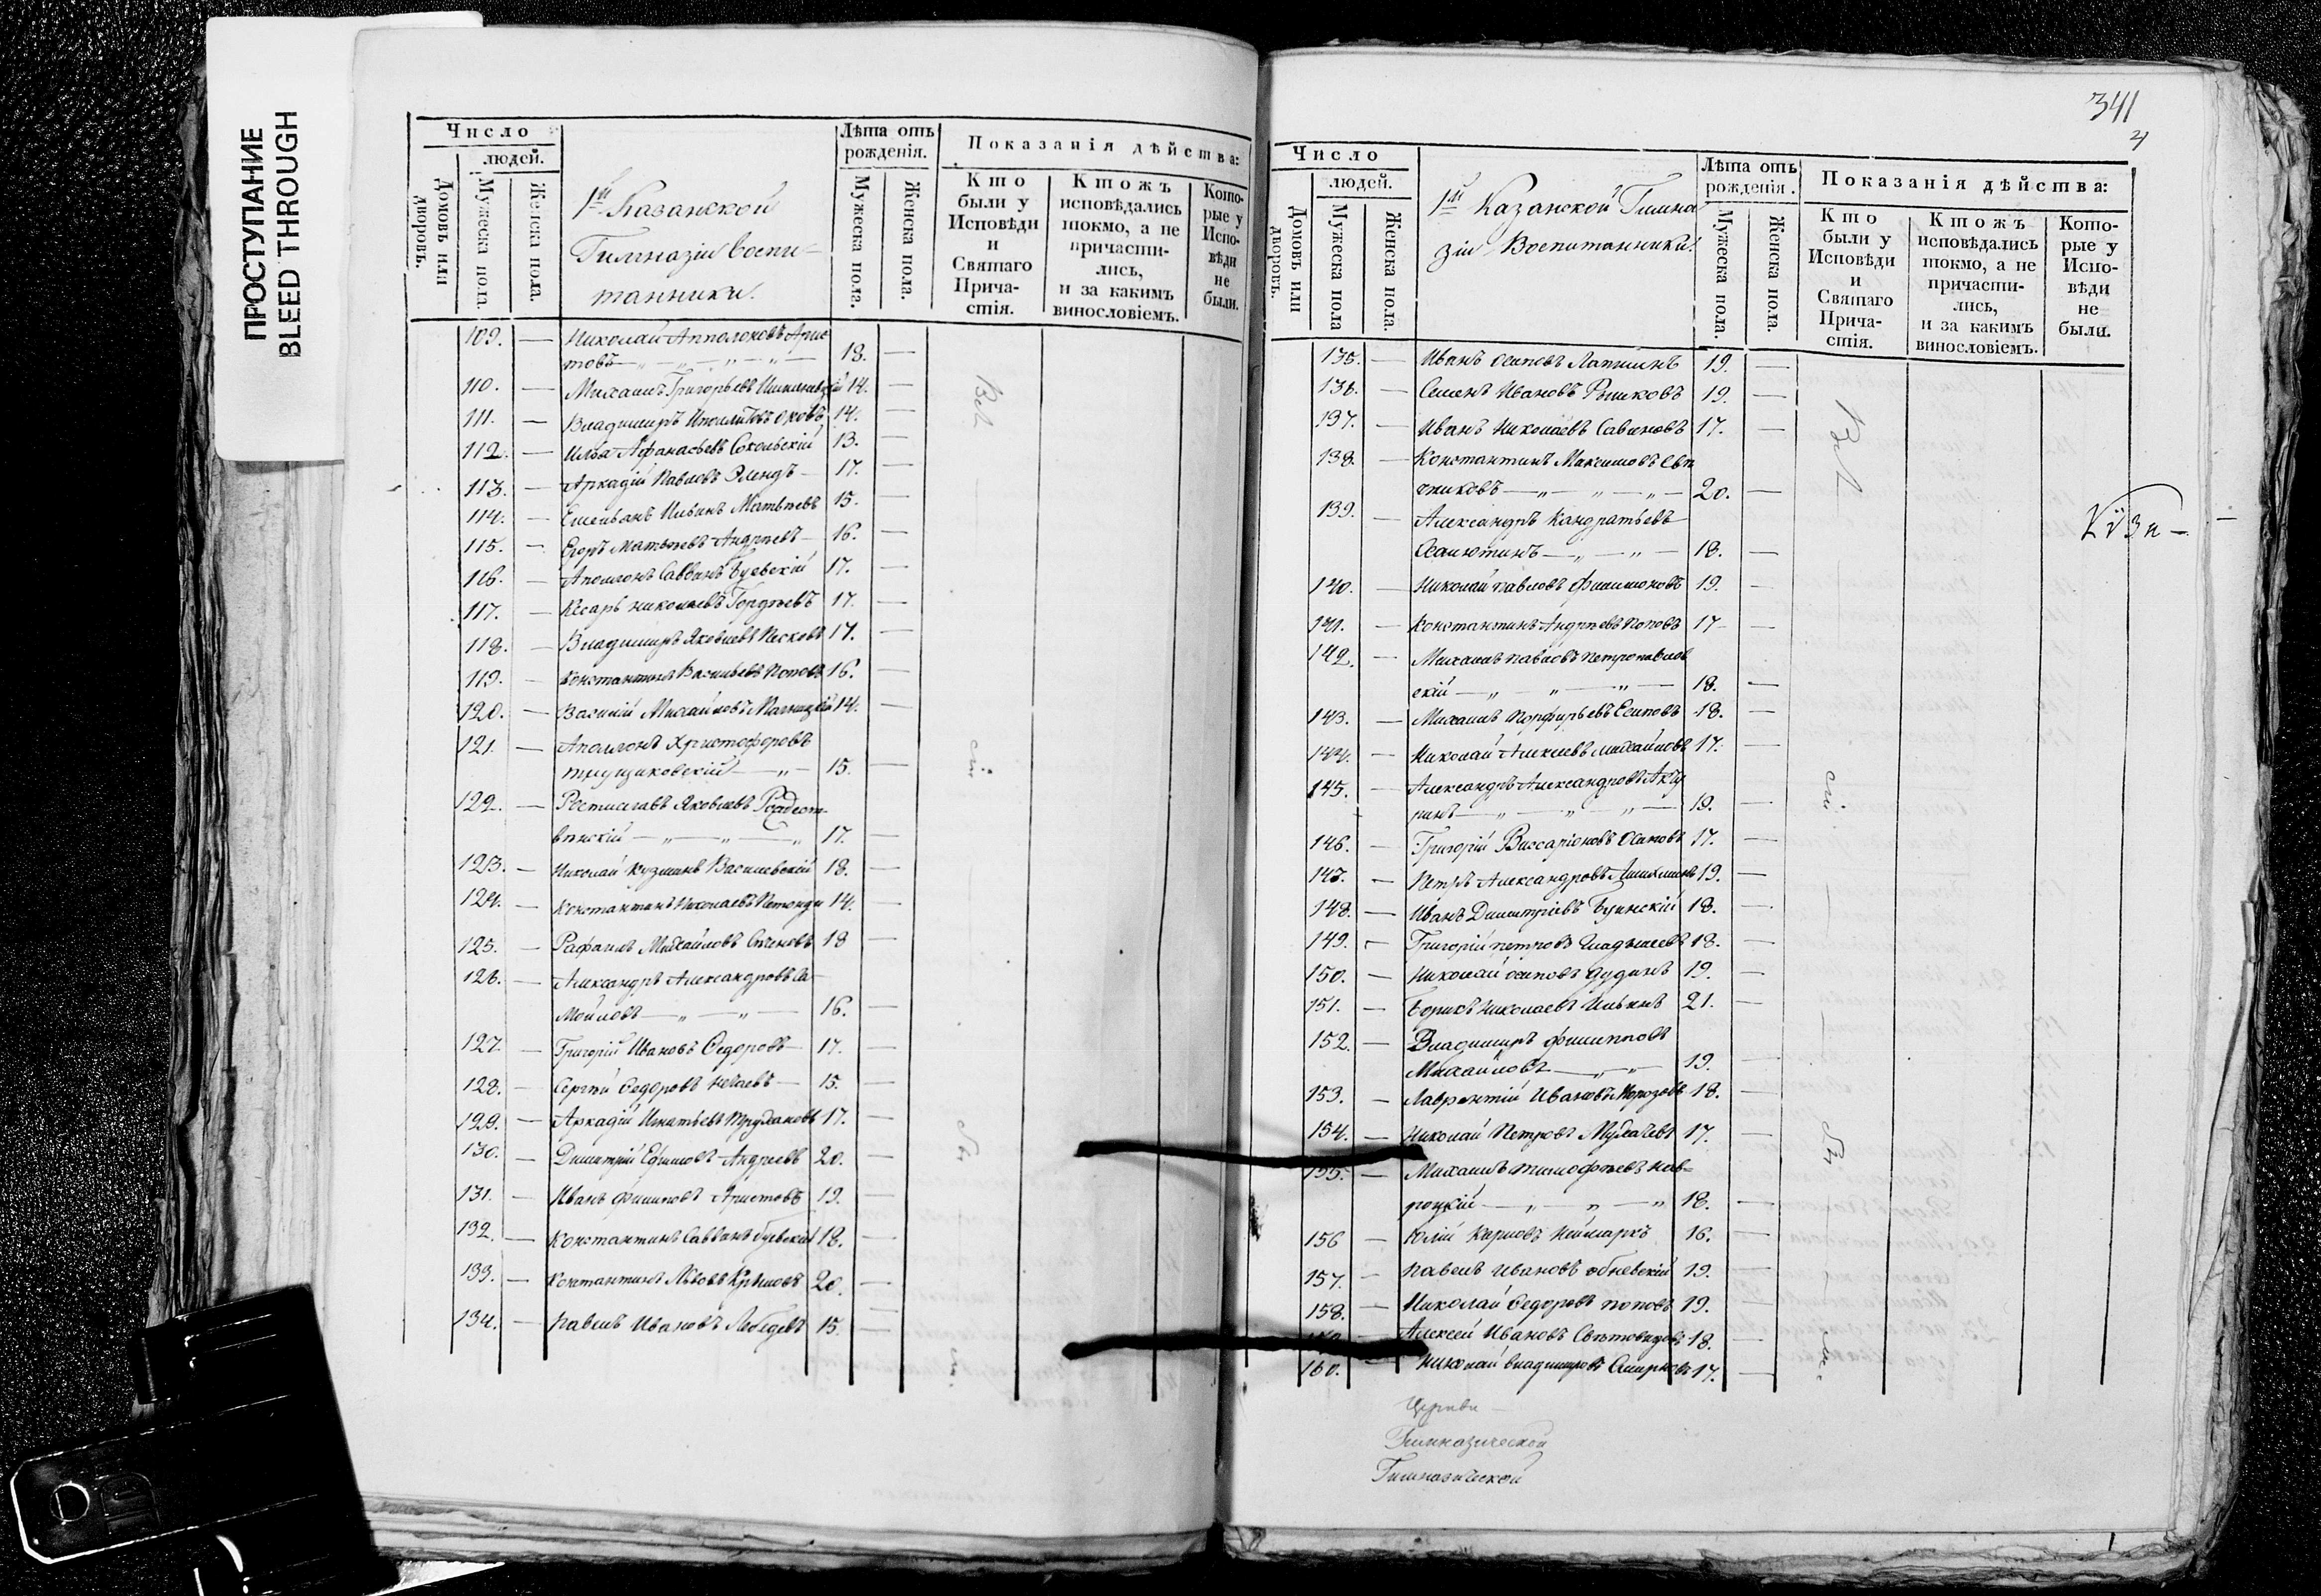 ПРОСТУПАНИЕ
BLEED THROUGH
Число
людей.
Домовъ или дворовъ.
Мужеска пола.
Женска пола.
1й Казанской
Гимназіи Воспи-
танники.
Лѣта отъ рожденія.
Мужеска пола.
Женска пола.
Показанія дѣйства:
Кто были у Исповѣди и Святаго Прича-стія.
Ктожъ исповѣдались токмо, а не причасти-лись, и за какимъ винословіемъ.
Кото-рые у Испо-вѣди не были.
109. — Николай Апполоновъ Арис
товъ — 18. —
110. — Михаилъ Григорьевъ 14. —
111. — Владимиръ 14. —
112. — Илья Афанасьевъ Сокольскій 13. —
113. — Аркадій Павловъ Эллендъ — 17. —
114. — Емельянъ Ильинъ Матвѣевъ 15. —
115. — Егоръ Матвѣевъ Андреевъ — 16. —
116. — Аполлонъ Саввинъ Буевскій 17. —
117. — Кесарь Николаевъ Гордѣевъ 17. —
118. — Владимиръ Яковлевъ Песковъ 17. —
119. — Константинъ Васильевъ Поповъ 16. —
120. — Василій Михайловъ Магницкій 14. —
121. — Аполлонъ Христофоровъ
15. —
122. — Ростиславъ Яковлевъ Рождест-
вѣнскій — 17. —
123. — Николай Кузминъ Василевскій 18. —
124. — Константинъ Николаевъ Петонди 14. —
125. — Рафаилъ Михайловъ Сѣченовъ 18 —
126. — Александръ Александровъ Са-
мойловъ — 16. —
127. — Григорій Ивановъ Федоровъ — 17. —
128. — Сергѣй Федоровъ Нечаевъ — 15. —
129. — Аркадій Игнатьевъ 17. —
130. — Димитрій Ефимовъ Андреевъ 20. —
131. — Иванъ Филиповъ Аристовъ 19. —
132. — Константинъ Саввинъ Буевскій 18. —
133. — Константинъ Львовъ 20. —
134. — Павелъ Ивановъ Лебедевъ 15. —
341
4
Число
людей.
Домовъ или дворовъ.
Мужеска пола
Женска пола.
1й Казанской Гимна
зіи Воспитанники.
Лѣта отъ рожденія.
Мужеска пола.
Женска пола.
Показанія дѣйства:
Кто были у Исповѣди и Святаго Прича-стія.
Ктожъ исповѣдались токмо, а не причасти-лись, и за какимъ винословіемъ.
Кото-рые у Испо-вѣди не были.
135. — Иванъ Осиповъ Лапшинъ 19. —
136. — Семенъ Ивановъ Рышковъ 19. —
137. — Иванъ Николаевъ Савиновъ 17. —
138. — Константинъ Максимовъ Свѣ
шниковъ — 20. —
139. — Александръ Кондратьевъ
18. —
140. — Николай Павловъ Филимоновъ 19. —
141. — Константинъ Андреевъ Поповъ 17 —
142. — Михаилъ Павловъ Петропавлов
скій — 18. —
143. — Михаилъ Порфирьевъ Есиповъ 18. —
144. — Николай Алексѣевъ Михайловъ 17. —
145. — Александръ Александровъ Акчу
ринъ — 19. —
146. — Григорій Виссаріоновъ Осиповъ 17. —
147. — Петръ Александровъ 19. —
148. — Иванъ Димитріевъ Буинскій 18. —
149. — Григорій Петровъ Гладышевъ 18. —
150. — Николай Осиповъ Дудинъ 19. —
151. — Борисъ Николаевъ Ильинъ 21. —
152. — Владимиръ Филипповъ
Михайловъ — 19. —
153. — Лаврентій Ивановъ Морозовъ 18. —
154. — Николай Петровъ 17. —
155. — Михаилъ Тимофѣевъ Нав-
роцкій — 18. —
156 — Юлій Карловъ Неймаркъ 16. —
157. — Павелъ Ивановъ Обневскій 19. —
158. — Николай Федоровъ Поповъ 19. —
Алексѣй Ивановъ Свѣтовидовъ 18. —
160. — Николай Владимировъ Смирновъ 17. —
Церкви
Гимназической
Гимназической